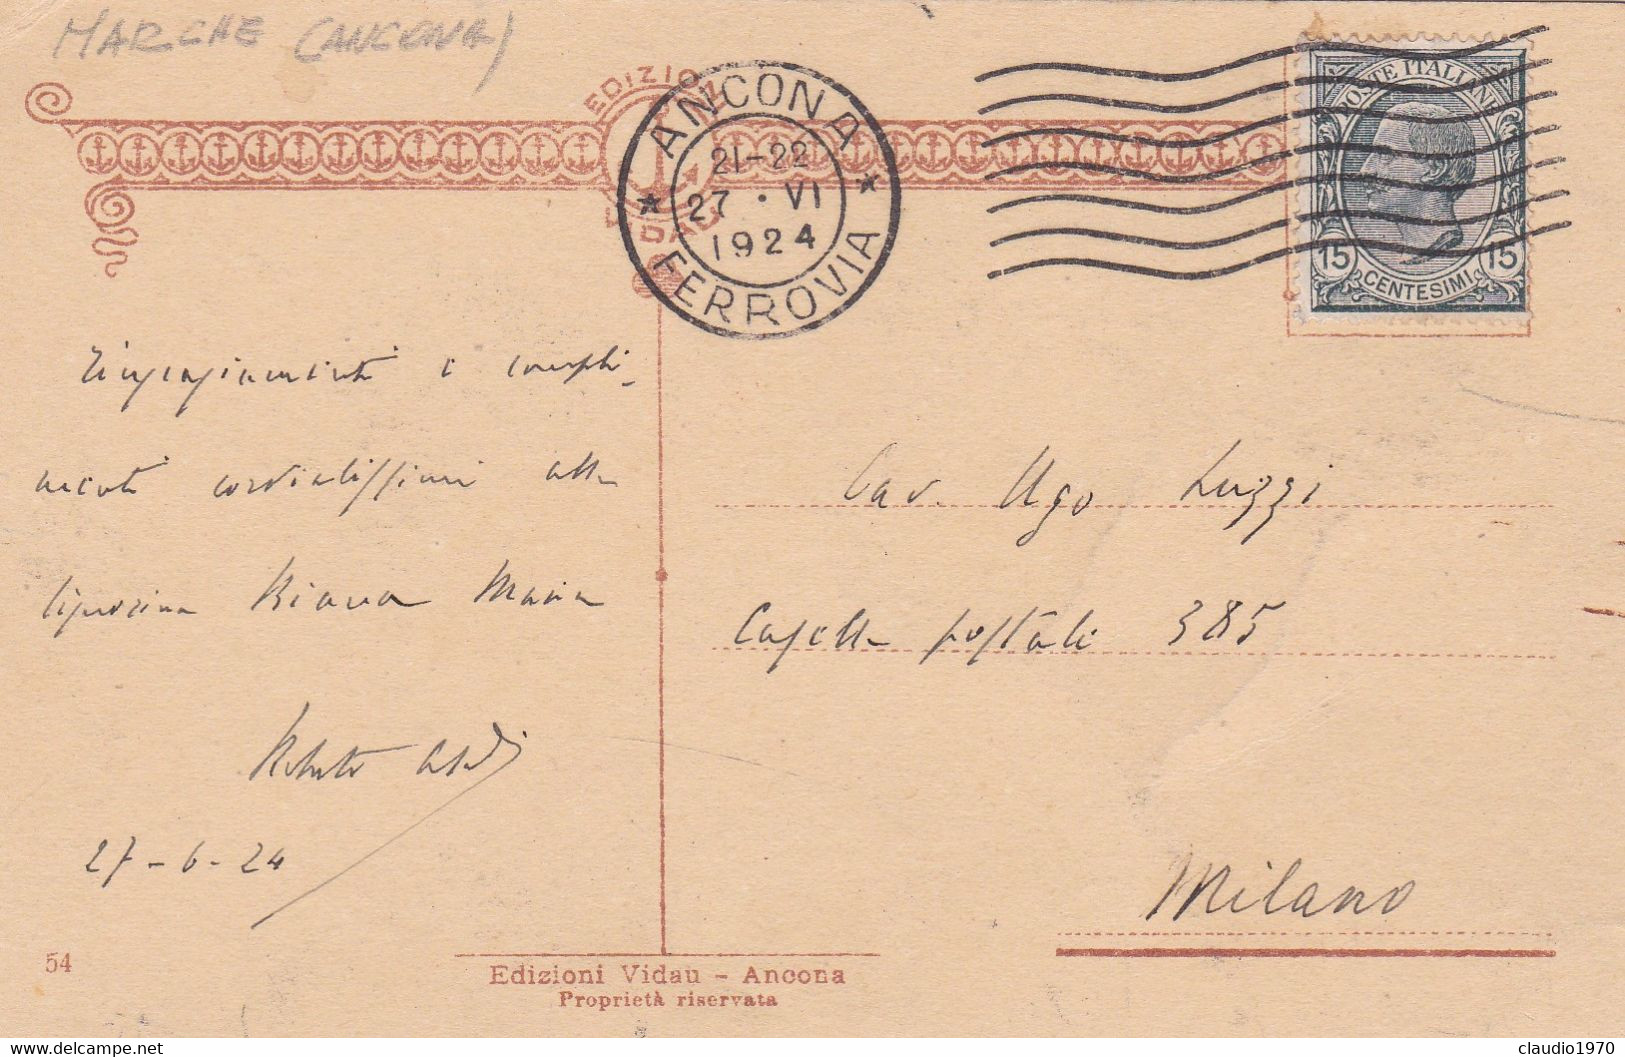 MARCHE (ANCONA)
EDIZIONI
VIDAU
ANCONA
21-22
27 · VI
1924
FERROVIA
POSTE ITALIANE
15 15
CENTESIMI
Ringraziamenti e compli-
menti cordialissimi alla
Bianca Maria
27-6-24
Cav. Ugo Luzzi
Casella postale 385
Milano
54
Edizioni Vidau - Ancona
Proprietà riservata
www.delcampe.net
claudio1970